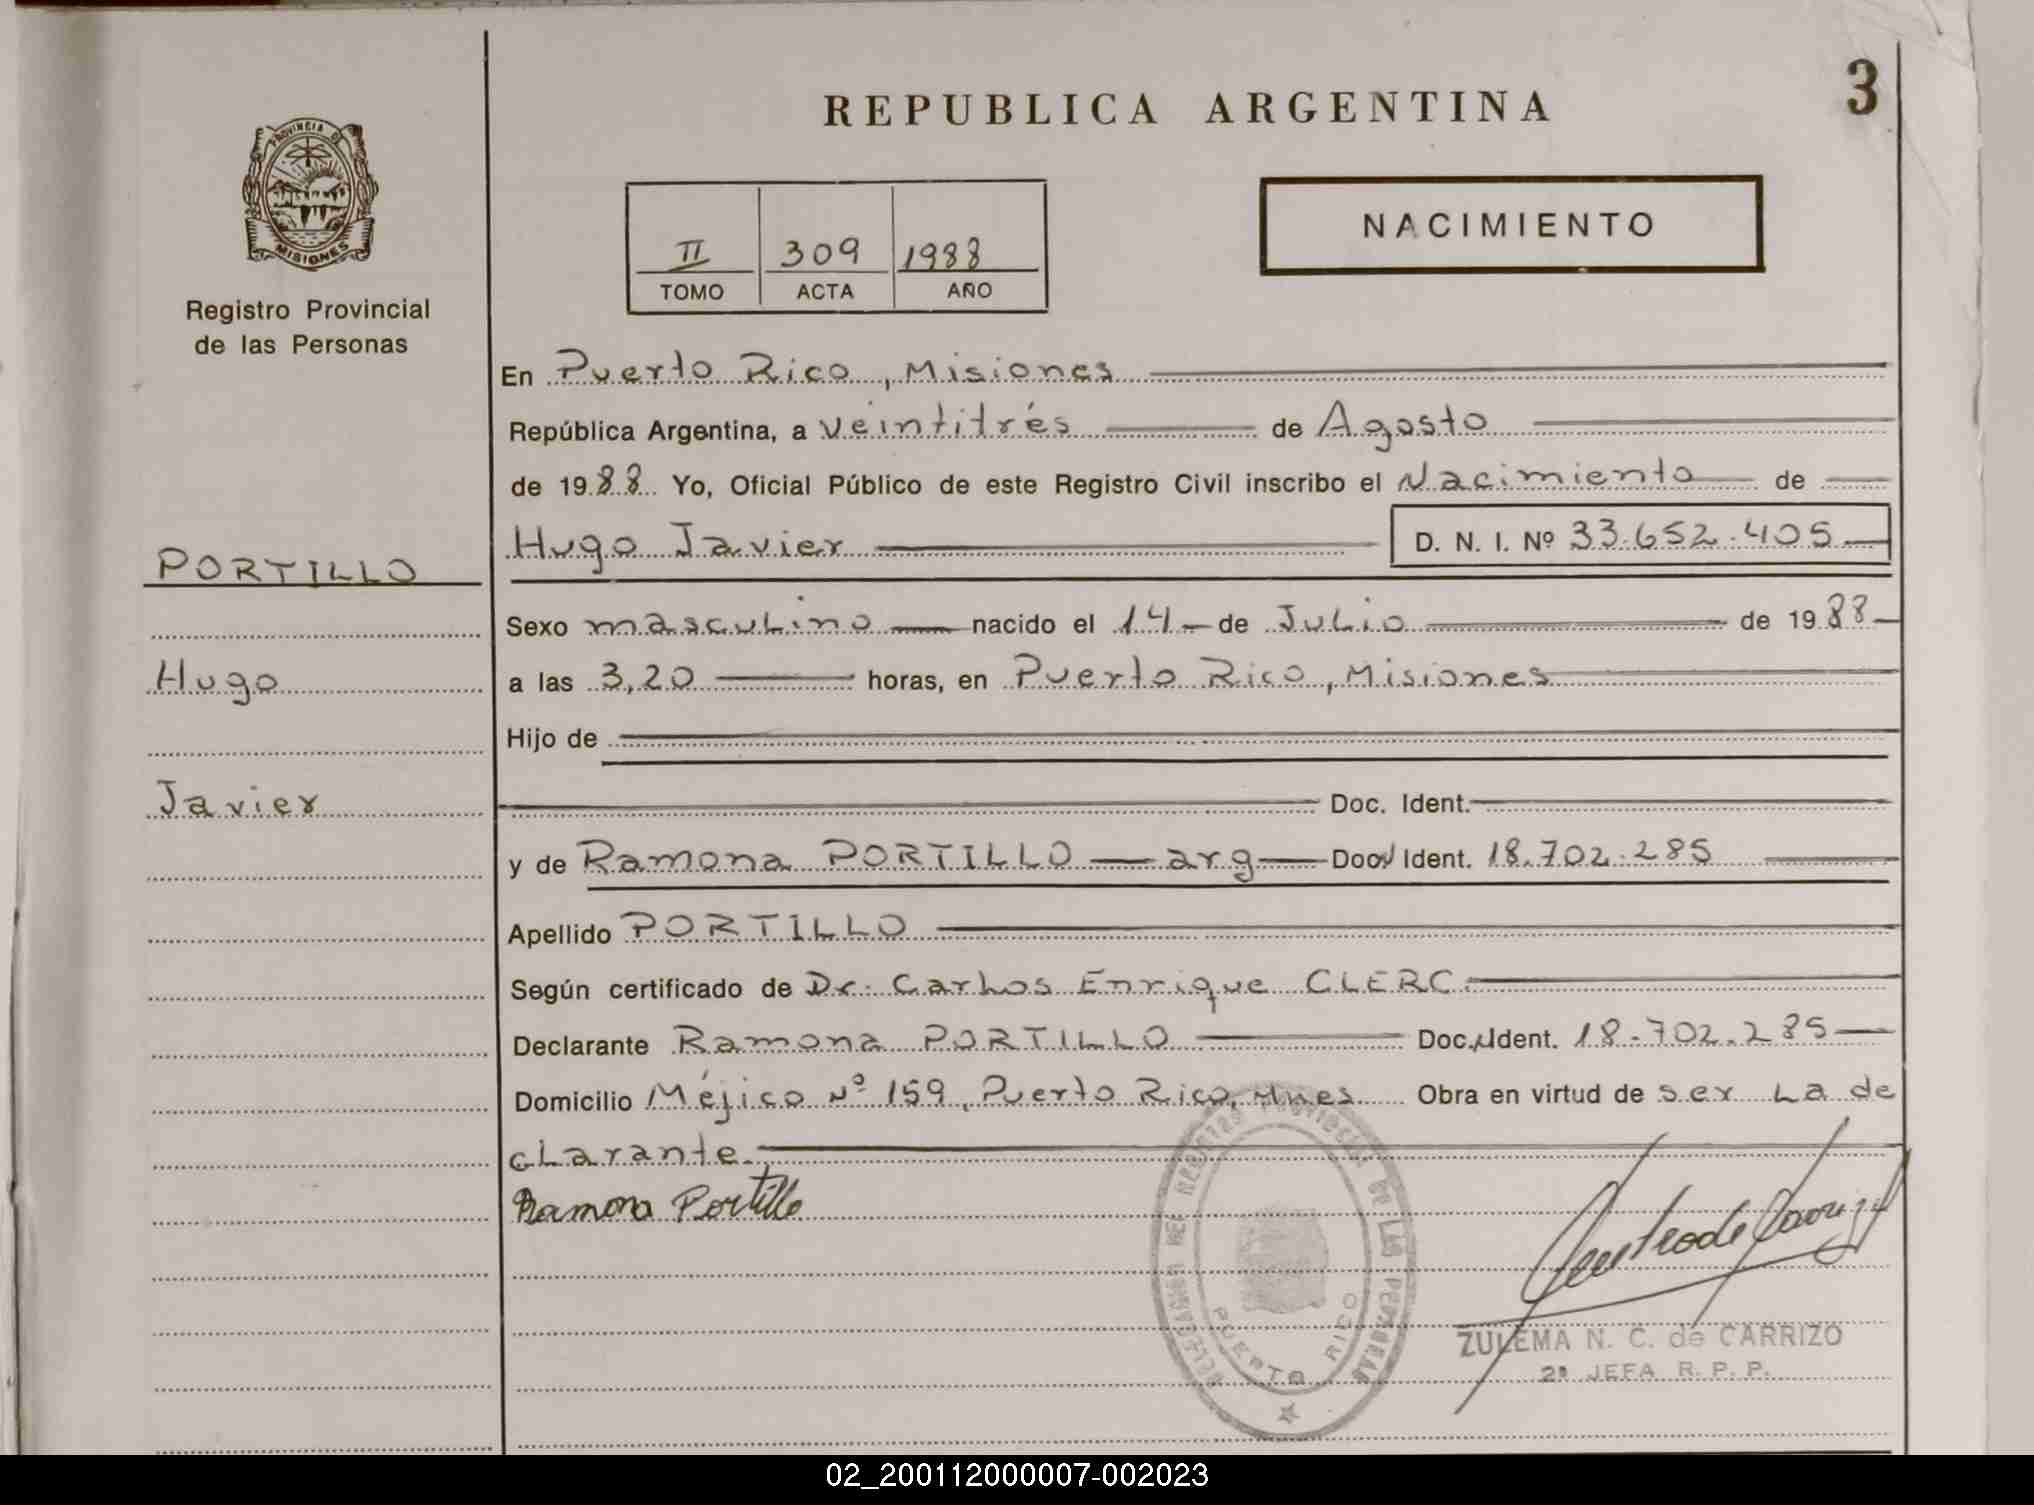 REPUBLICA ARGENTINA
3
PROVINCIA DE
MISIONES
Registro Provincial
de las Personas
II 309 1988
TOMO ACTA AÑO
NACIMIENTO
En Puerto Rico, Misiones
República Argentina, a veintitrés de Agosto
de 1988 Yo, Oficial Público de este Registro Civil inscribo el Nacimiento de
Hugo Javier D. N. I. Nº 33.652.405
PORTILLO
Hugo
Javier
Sexo masculino nacido el 14 de Julio de 1988
a las 3,20 horas, en Puerto Rico, Misiones
Hijo de
Doc. Ident.
y de Ramona PORTILLO arg Doc. Ident. 18.702.285
Apellido PORTILLO
Según certificado de Dr. Carlos Enrique CLERC
Declarante Ramona PORTILLO Doc. Ident. 18.702.285
Domicilio Méjico Nº 159, Puerto Rico, Mnes Obra en virtud de ser la de
clarante.
Ramona Portillo
DELEGACION DEL REGISTRO PROVINCIAL DE LAS PERSONAS
PUERTO RICO
ZULEMA N. C. de CARRIZO
2ª JEFA R. P. P.
02_200112000007-002023